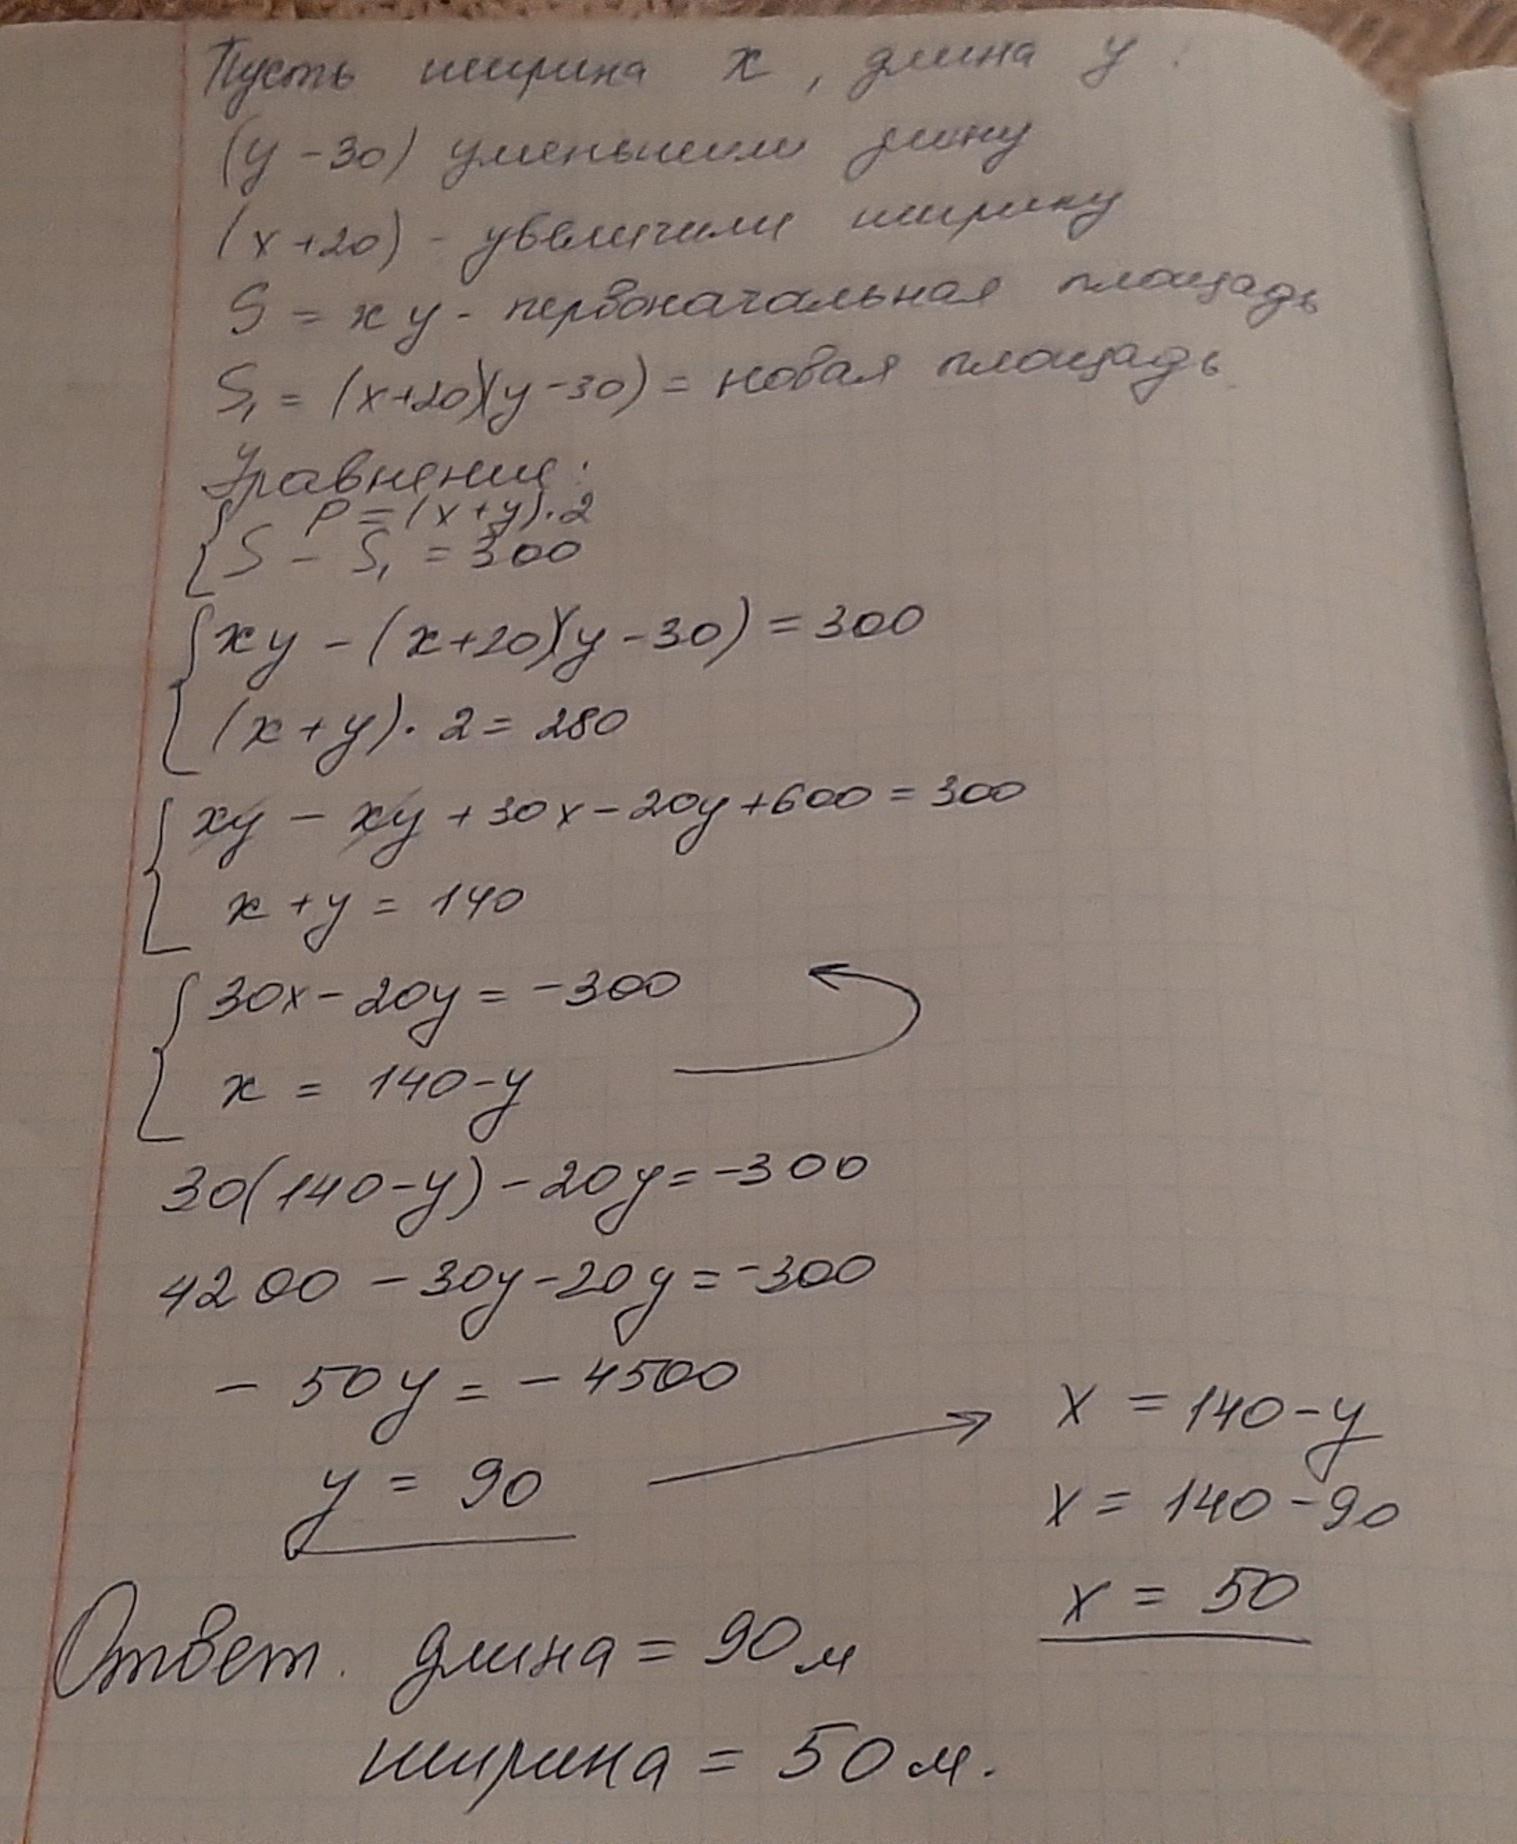 Пусть ширина x, длина y.
(y-30) уменьшили длину
(x+20) - увеличили ширину
S = xy - первоначальная площадь
S₁ = (x+20)(y-30) = новая площадь
Уравнение:
P = (x+y)·2
S - S₁ = 300
xy - (x+20)(y-30) = 300
(x+y)·2 = 280
xy - xy + 30x - 20y + 600 = 300
x + y = 140
30x - 20y = -300
x = 140-y
30(140-y) - 20y = -300
4200 - 30y - 20y = -300
- 50y = - 4500
y = 90
x = 140-y
x = 140-90
x = 50
Ответ. длина = 90м
ширина = 50м.